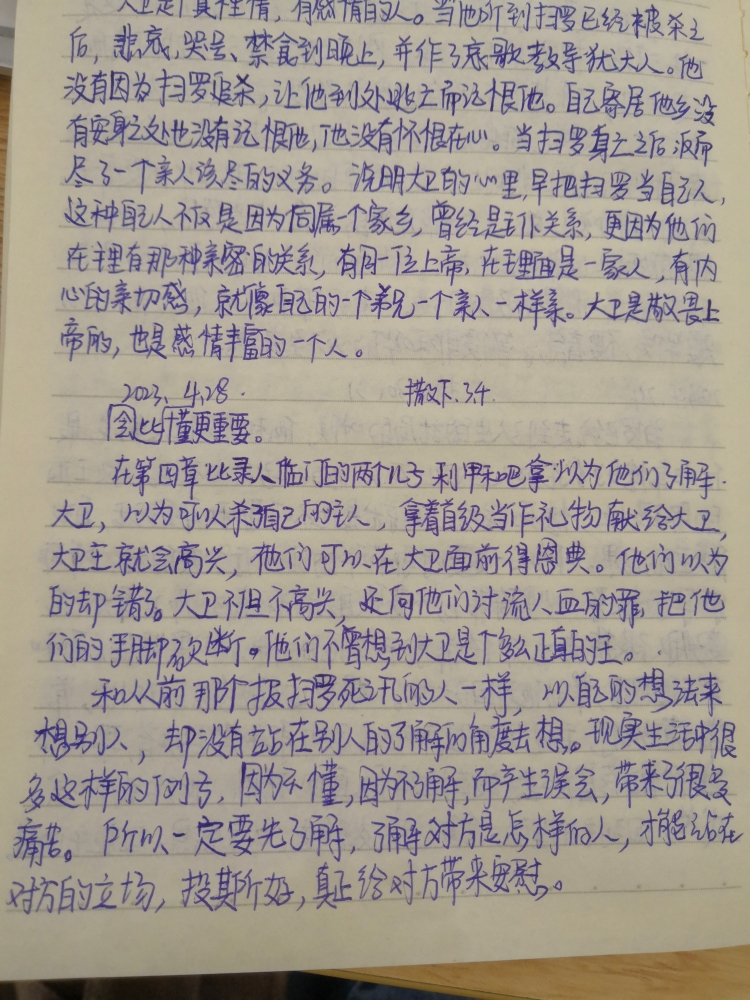 大卫是个真性情，有感情的人。当他听到扫罗已经被杀之
后，悲哀，哭号、禁食到晚上，并作了哀歌教导犹大人。他
没有因为扫罗追杀，让他到处逃亡而记恨他。自己寄居他乡没
有安身之处也没有记恨他，他没有怀恨在心。当扫罗身亡之后返而
尽了一个亲人该尽的义务。说明大卫的心里，早把扫罗当自己人，
这种自己人不仅是因为同属一个家乡，曾经是主仆关系，更因为他们
在主里有那种亲密的关系，有同一位上帝，在主里面是一家人，有内
心的亲切感，就像自己的一个弟兄一个亲人一样亲。大卫是敬畏上
帝的，也是感情丰富的一个人。
2023. 4.28. 撒母下. 3.4.
比懂更重要。
在第四章比录人临门的两个儿子利甲和巴拿以为他们了解
大卫，以为可以杀了自己的主人，拿着首级当作礼物献给大卫，
大卫王就会高兴，他们可以在大卫面前得恩典。他们以为
的却错了。大卫不但不高兴，还向他们讨流人血的罪，把他
们的手脚砍断。他们不曾想到大卫是个多么正直的王。
和从前那个报扫罗死讯的人一样，以自己的想法来
想别人，却没有站在别人的了解的角度去想。现实生活中很
多这样的例子，因为不懂，因为不了解，而产生误会，带来了很多
痛苦。所以一定要先了解，了解对方是怎样的人，才能站在
对方的立场，投其所好，真正给对方带来安慰。